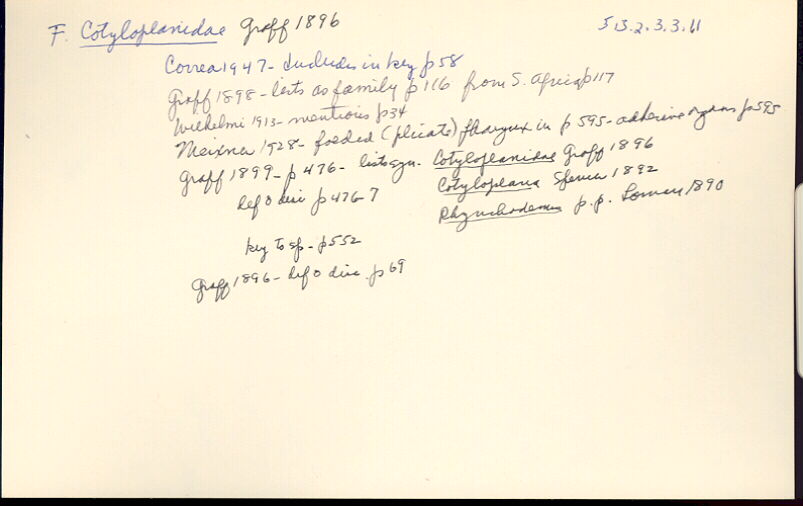 F. Cotyloplanidae Graff 1896 5 13.2.3.3.11
Correa 1947 - Includes in key p 58
Graff 1898 - lists as family p 116 from S. Africa p 117
Wilhelmi 1913 - mentions p 34
Meixner 1928 - folded (plicate) pharynx in p 595 - adhesive organs p 595
Graff 1899 - p 476 - lists syn. Cotyloplanidae Graff 1896
Cotyloplana Spencer 1892
def & disc p 476-7 Rhynchodemus p.p. Loman 1890
key to sp - p 552
Graff 1896 - def & disc p 69